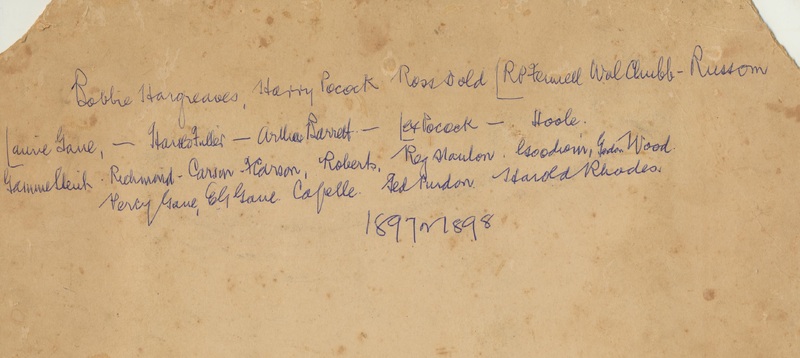 Bobbie Hargreaves, Harry Pocock Ross Dold [R P Fennell Wal Chubb - Russom
Laurie Gane, - Fuller - Arthur Barrett - Lex Pocock - Hoole.
Richmond - Carson - Roberts, Reg Goodwin, Wood
Percy Gane, E G Gane Capelle. Ted Purdon Harold Rhodes.
1897 or 1898